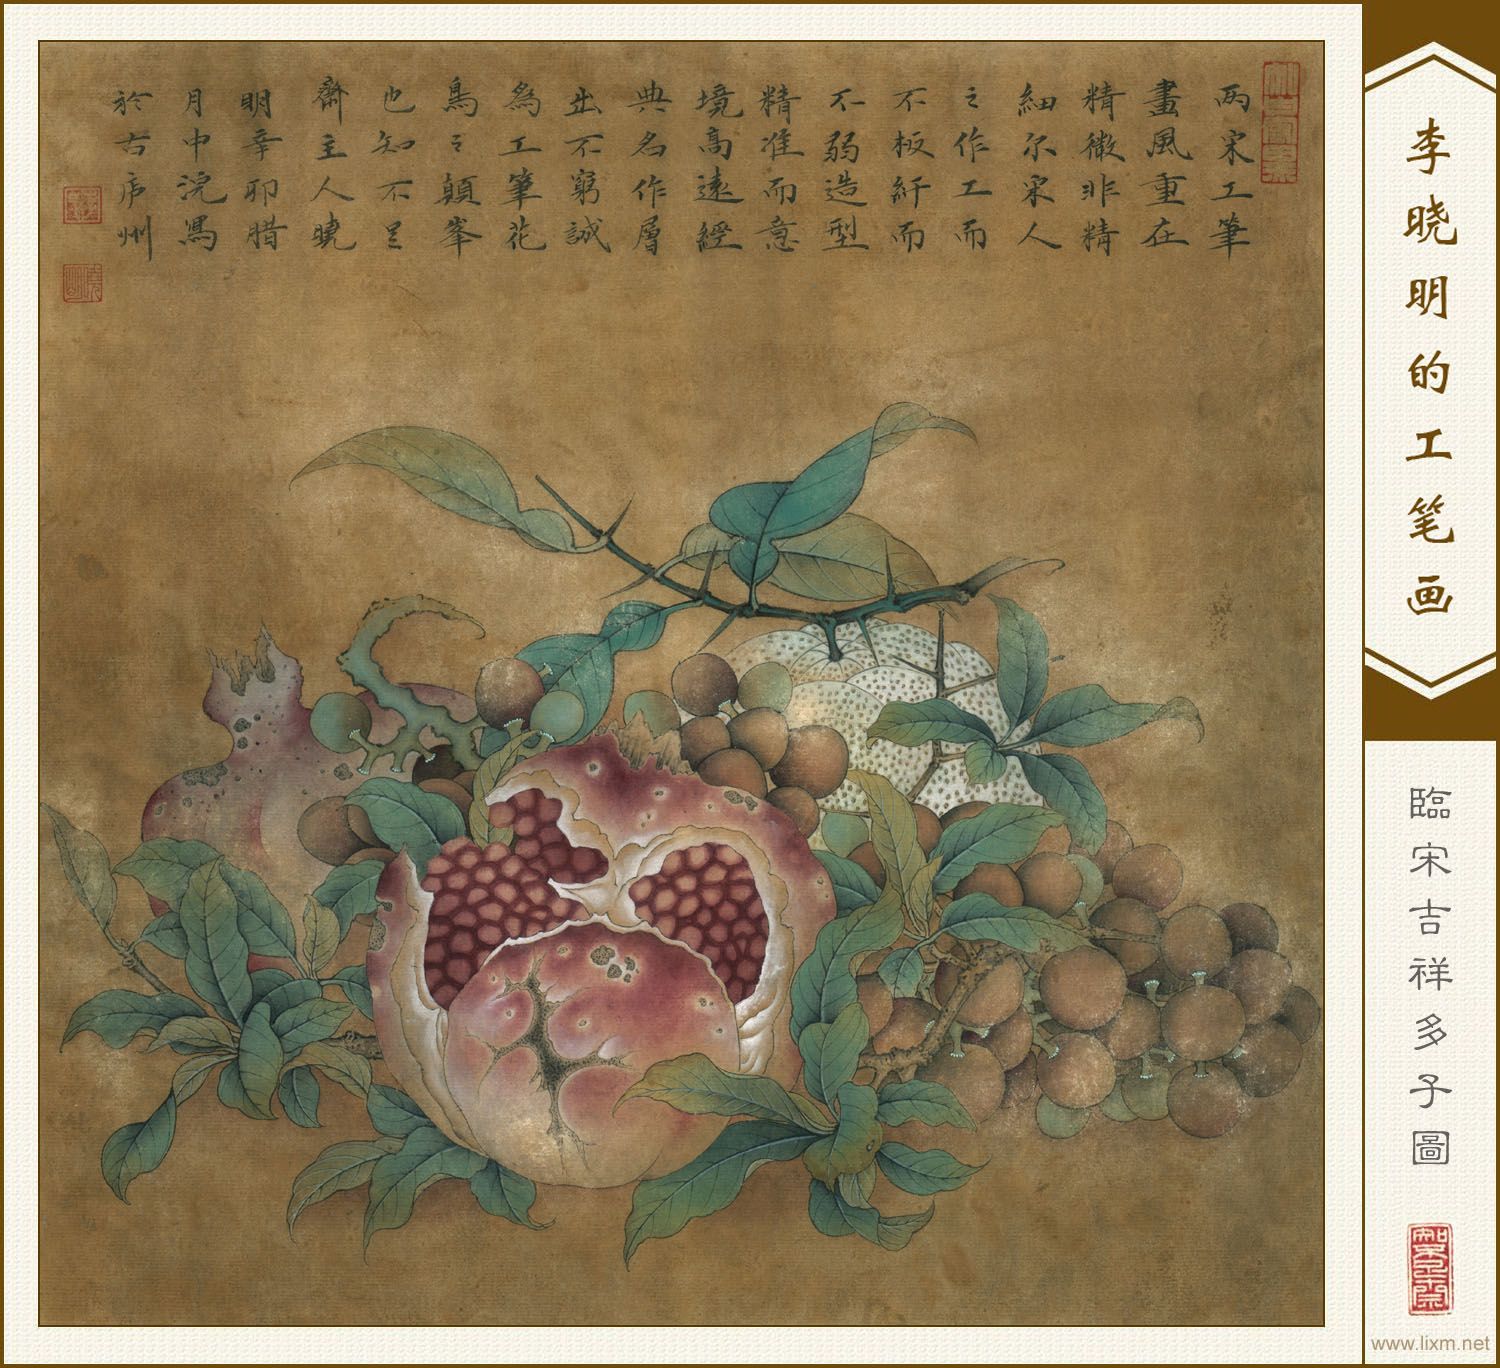 两宋工筆
畫風重在
精微非精
細尔宋人
之作工而
不板纤而
不弱造型
精准而意
境高遠經
典名作層
出不窮誠
為工筆花
鳥之顛峯
也知不足
齋主人曉
明辛卯腊
月中浣寫
於古庐州
李晓明的工笔画
臨宋吉祥多子圖
www.lixm.net